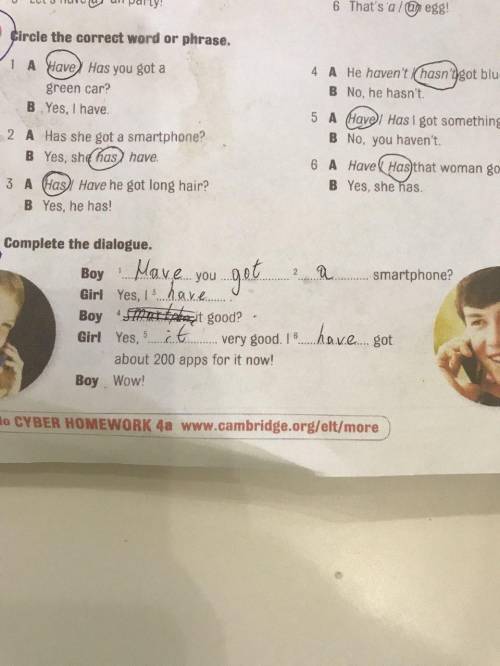 6 That's a / an egg!
Circle the correct word or phrase.
1 A Have / Has you got a
green car?
B Yes, I have.
2 A Has she got a smartphone?
B Yes, she has / have.
3 A Has / Have he got long hair?
B Yes, he has!
4 A He haven't / hasn't got
B No, he hasn't.
5 A Have / Has I got something
B No, you haven't.
6 A Have / Has that woman
B Yes, she has.
Complete the dialogue.
Boy 1 Have you got 2 a smartphone?
Girl Yes, I 3 have
Boy 4 it good?
Girl Yes, 5 it very good. I 6 have got
about 200 apps for it now!
Boy Wow!
CYBER HOMEWORK 4a www.cambridge.org/elt/more